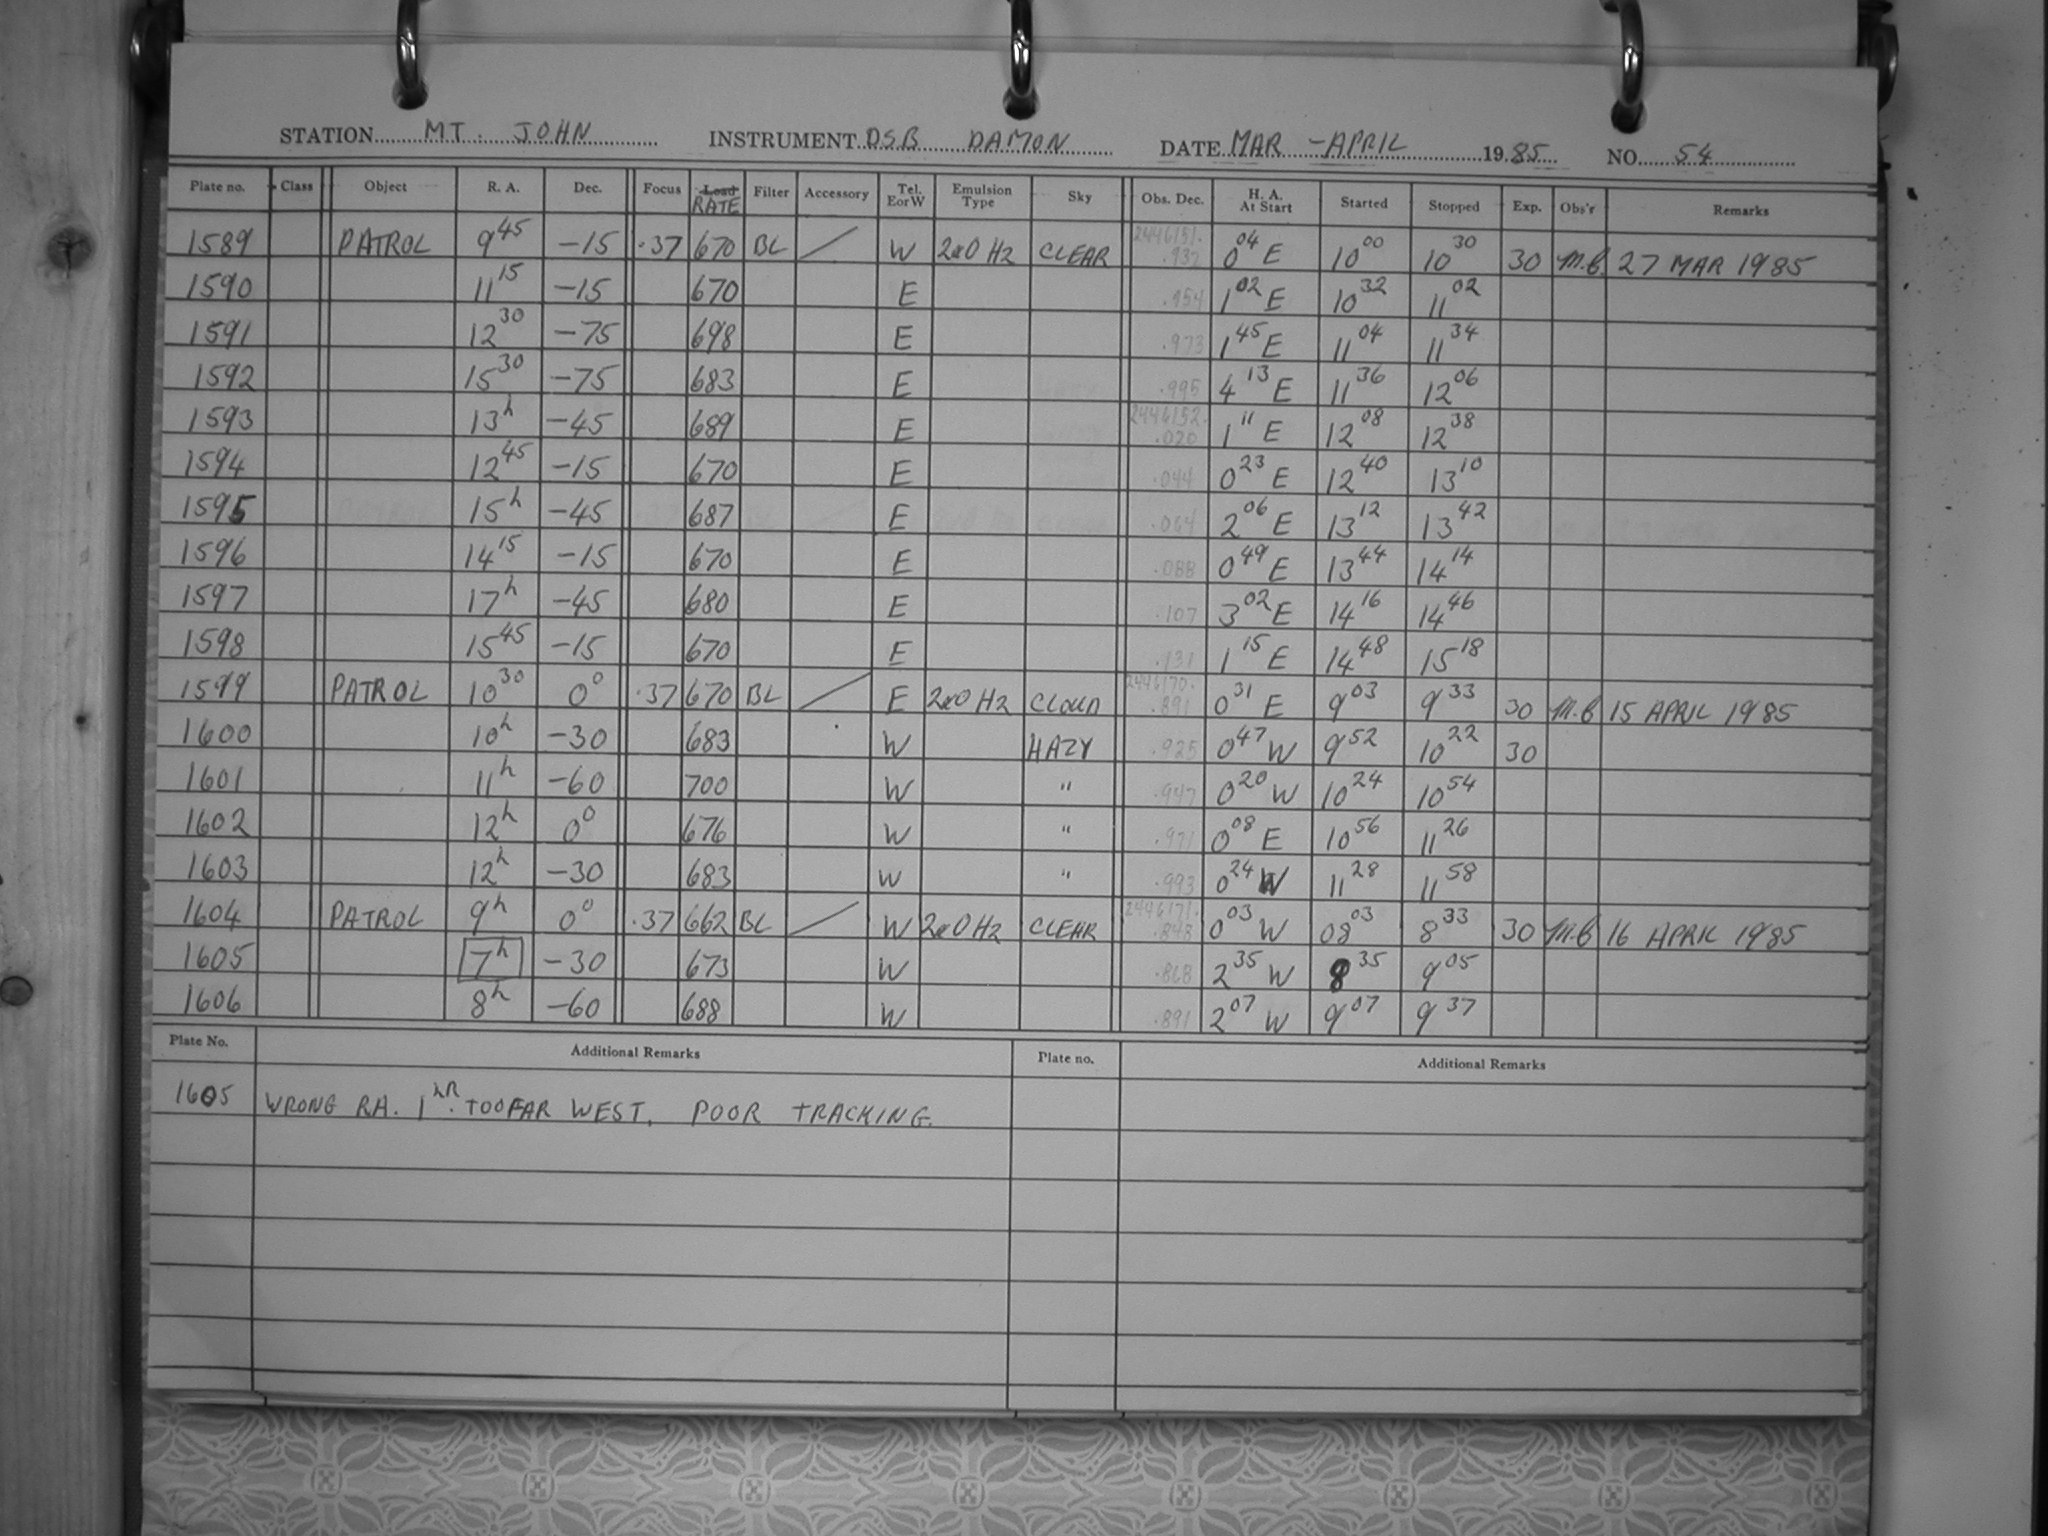 STATION MT. JOHN INSTRUMENT DSB DAMON DATE MAR - APRIL 1985 NO. 54
Plate no. Class Object R. A. Dec. Focus Load RATE Filter Accessory Tel. E or W Emulsion Type Sky Obs. Dec. H. A. At Start Started Stopped Exp. Obs'r Remarks
1589 PATROL 9 45 -15 .37 670 BL / W 2x0 Hz CLEAR 2446151. .932 0 04 E 10 00 10 30 30 M.C. 27 MAR 1985
1590 11 15 -15 670 E .954 1 02 E 10 32 11 02
1591 12 30 -75 698 E .973 1 45 E 11 04 11 34
1592 15 30 -75 683 E .995 4 13 E 11 36 12 06
1593 13h -45 689 E 2446152. .020 1 11 E 12 08 12 38
1594 12 45 -15 670 E .044 0 23 E 12 40 13 10
1595 15h -45 687 E .064 2 06 E 13 12 13 42
1596 14 15 -15 670 E .088 0 49 E 13 44 14 14
1597 17h -45 680 E .107 3 02 E 14 16 14 46
1598 15 45 -15 670 E .131 1 15 E 14 48 15 18
1599 PATROL 10 30 0° .37 670 BL / E 2x0 Hz CLOUD 2446170. .891 0 31 E 9 03 9 33 30 M.C 15 APRIL 1985
1600 10h -30 683 W HAZY .925 0 47 W 9 52 10 22 30
1601 11h -60 700 W " .947 0 20 W 10 24 10 54
1602 12h 0° 676 W " .971 0 08 E 10 56 11 26
1603 12h -30 683 W " .993 0 24 W 11 28 11 58
1604 PATROL 9h 0° .37 662 BL / W 2x0 Hz CLEAR 2446171. .848 0 03 W 08 03 8 33 30 M.C 16 APRIL 1985
1605 7h -30 673 W .868 2 35 W 8 35 9 05
1606 8h -60 688 W .891 2 07 W 9 07 9 37
Plate No. Additional Remarks Plate no. Additional Remarks
1605 WRONG RA. 1 HR. TOO FAR WEST. POOR TRACKING.